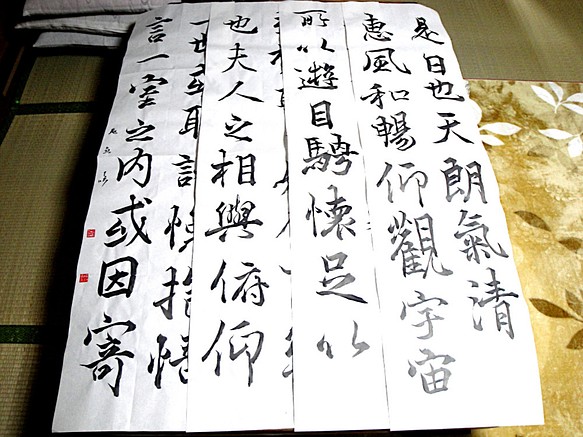 是日也天朗氣清
惠風和暢仰觀宇宙
所以遊目騁懷足以
也夫人之相與俯仰
一世或取諸懷抱悟
言一室之内或因寄